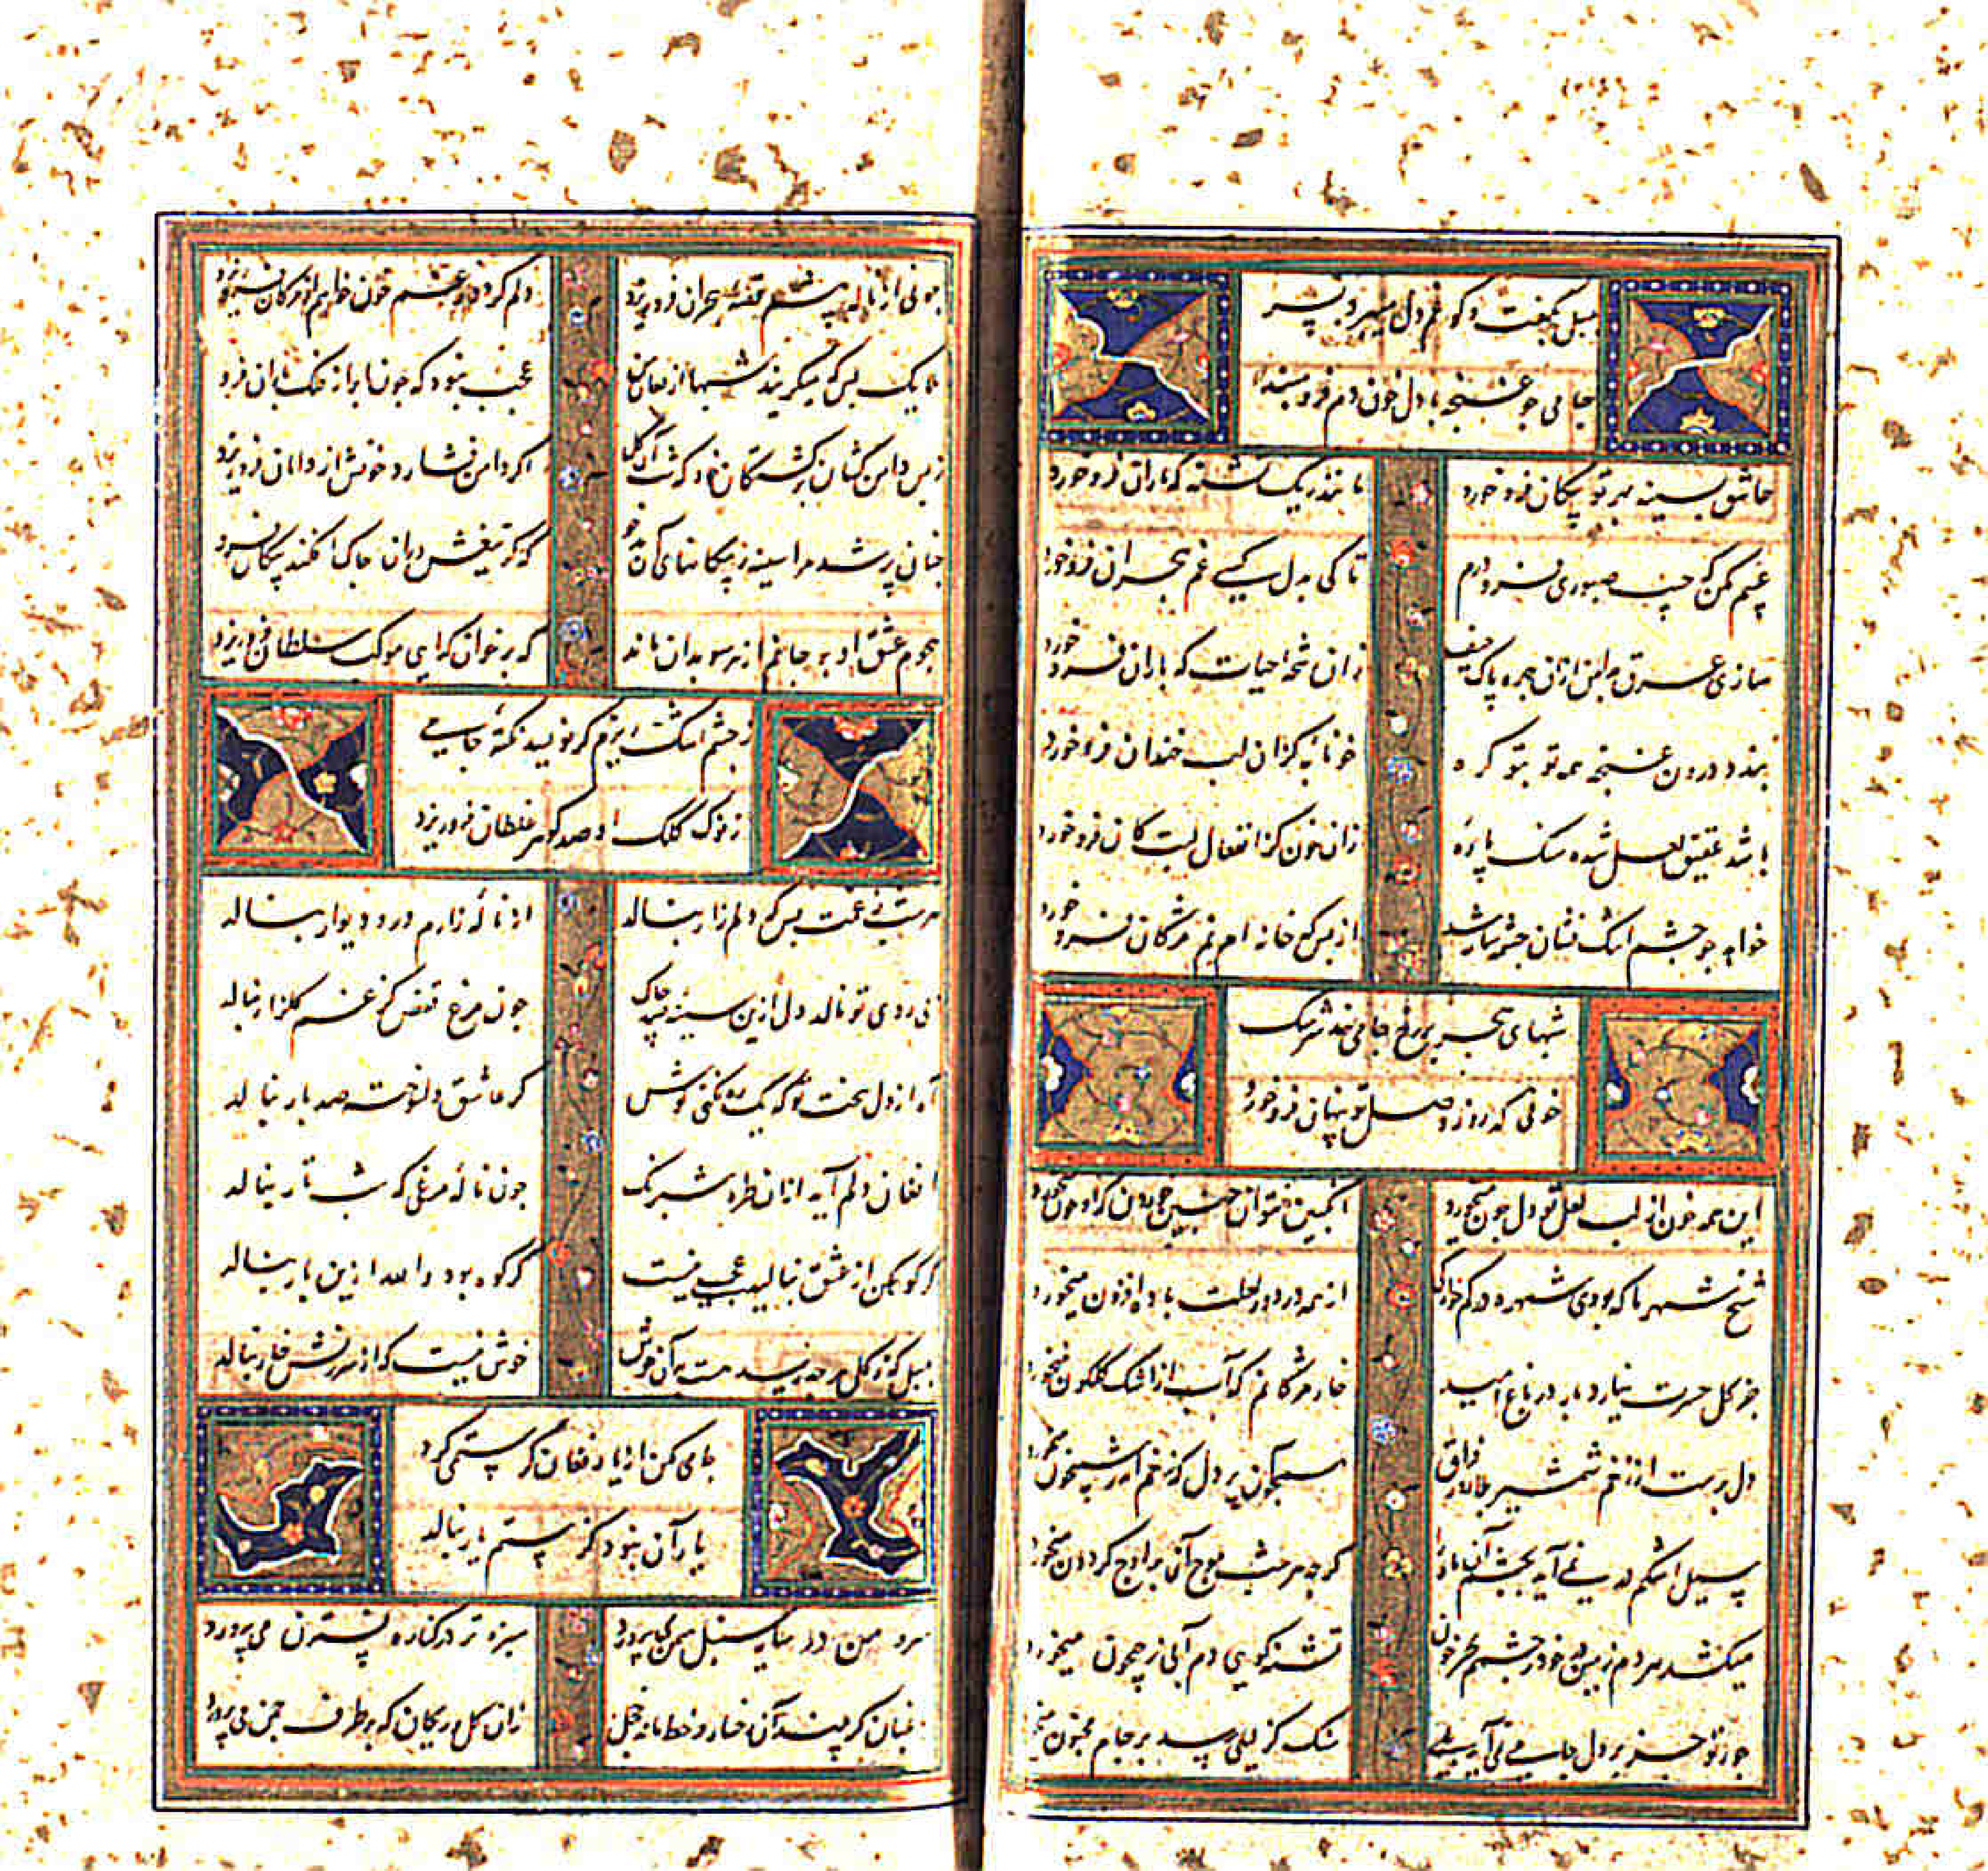 بلبل بگفت و گو غم دل میبرد بسر
جامی چو غنچه با دل خون دم فرو
عاشق بسینه مهر تو پیکان فرو خورد
مانند ریک تشنه که باران فرو خورد
عیبم مکن که جیب صبوری درم
تا کی بدل کسی غم هجران فرو خورد
سازی عرق پیراهن ازان چهره پاک حیف
زان رشحه حیات که باران فرو خورد
بندد درون غنچه همه تو بتو گره
خونابه کزان لب خندان فرو خورد
باشد عقیق لعل شده سنک پاره
زان خون کز انفعال لبت کان فرو خورد
خواهد چو چشم اشک فشان چشمه سار شد
از بس که خانه ام نم مژکان فرو خورد
شبهای هجر بر رخ جامی نهد سرشک
خونی که روز وصل تو پنهان فرو خورد
این همه خون از لب لعل تو دل چون میخورد
انگبین نتوان چنین خوردن که او خون میخورد
شیخ شهر ما که بودی شهره در کم خوارگی
از همه در دور لعلت باده افزون میخورد
جز گل حسرت نیارد بار در باغ امید
خار مژگانم که آب از اشک گلگون میخورد
دل پرست از زخم شمشیر فراق
میکون پر دل کز غم شبیخون میخورد
سیل اشکم در نمی آید بچشم آن ماه را
گرچه هر شب موج آن بر اوج گردون میخورد
میکشد مردم زمین خود ز چشم بحر خون
تشنه گویی دم آبی ز جیحون میخورد
جور تو جز بر دل جامی نمی آید بلی
سنک کز لیلی رسد بر جام مجنون میخورد
چو نی از ناله پیشم قصه هجران فرو ریزد
دلم گردد ز غم خون وانهم از مژکان فرو ریزد
ملایک بس که میگریند شبها از فغان من
عجب نبود که خوناب از فلک باران فرو
ز بس دامن کشان بر کشتگان خود گذشت آن گل
اگر دامن فشارد خونش از دامان فرو ریزد
چنان پر شد مرا سینه ز پیکانهای آن بدخو
که گر تیغش دران چاک افکند پیکان فرو
هجوم عشق او بر جانم از هر سو بدان ماند
که بر خوان گدایی موکب سلطان فرو ریزد
ز چشم اشک ریزم گر نویسد نکته جامی
ز نوک کلک او صد گوهر غلطان فرو ریزد
هر شب ز غمت بس که دلم زار بنالد
از ناله زارم در و دیوار بنالد
بی روی تو نالد دل ازین سینه صد چاک
چون مرغ قفس کز غم گلزار بنالد
آه از دل سخت تو که یک ره نکنی گوش
گر عاشق دلخسته صد بار بنالد
افغان دلم آید ازان طره شبرنگ
چون ناله مرغی که شب تار بنالد
گر کوهکن از عشق بنالید عجب نیست
گر کوه بود والله ازین بار بنالد
بلبل که ز گل هر چه رسید
خوش نیست که از سرزنش خار بنالد
جامی مکن از یار فغان گر ستمی کرد
یار آن نبود کز ستم یار بنالد
سرو من در سایه سنبل سمن می پرورد
سبزه تر در کناره نسترن می پرورد
باغبان گر بیند آن رخسار و خط ماند خجل
زان گل و ریحان که بر طرف چمن می پرورد